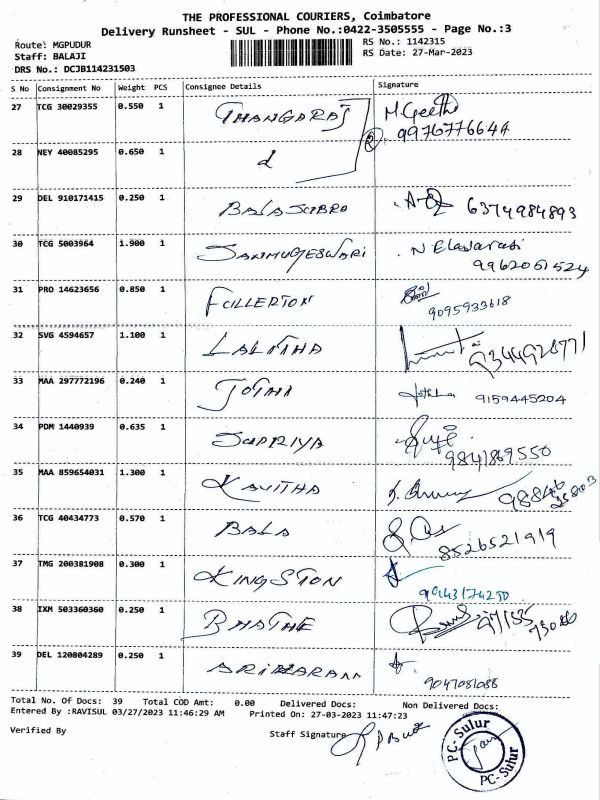 THE PROFESSIONAL COURIERS, Coimbatore
Delivery Runsheet - SUL - Phone No.:0422-3505555 - Page No.:3
Route: MGPUDUR
Staff: BALAJI
DRS No.: DCJB114231503
RS No.: 1142315
RS Date: 27-Mar-2023
S No Consignment No Weight PCS Consignee Details Signature
27 TCG 30029355 0.550 1 THANGARAJ M. Geetha
9976776644
28 NEY 40085295 0.650 1
29 DEL 910171415 0.250 1 BALASUBRO 6374984893
30 TCG 5003964 1.900 1 SANMUGESWARI N Elavarasi
9962051524
31 PRO 14623656 0.850 1 FULLERTON
9095933618
32 SVG 4594657 1.100 1 LALITHA 9344928771
33 MAA 297772196 0.240 1 JOTHI 9159445204
34 PDM 1440939 0.635 1 SUPRIYA
9841869550
35 MAA 859654031 1.300 1 KAVITHA
36 TCG 40434773 0.570 1 BALA
8526521919
37 TMG 200381908 0.300 1 KINGSTON
38 IXM 503360360 0.250 1
39 DEL 120804289 0.250 1 ARIHARAN
9047051088
Total No. Of Docs: 39 Total COD Amt: 0.00 Delivered Docs: Non Delivered Docs:
Entered By :RAVISUL 03/27/2023 11:46:29 AM Printed On: 27-03-2023 11:47:23
Verified By Staff Signature
PC- Sulur
PC- Sulur